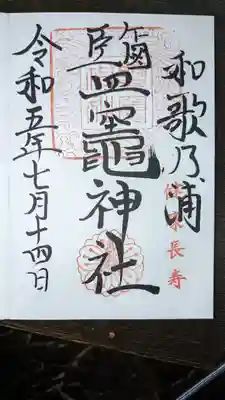 和歌乃浦
鹽竈神社
令和五年七月十四日
長寿